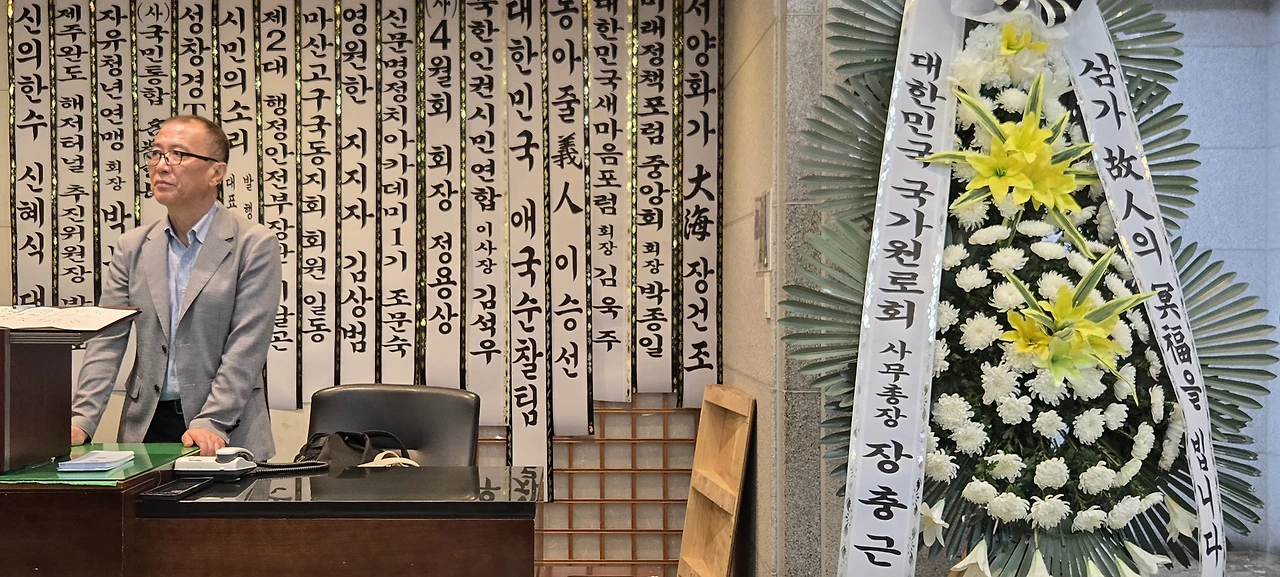 신의한수 신혜식 대
제주완도 해저터널 추진위원장 박
자유청년연맹 회장 박
(사)국민통합
성창경T
시민의소리 대표 발행
제2대 행정안전부장관
마산고구국동지회 회원 일동
영원한 지지자 김상범
신문명정치아카데미1기 조문숙
(사)4월회 회장 정용상
북한인권시민연합 이사장 김석우
대한민국 애국순찰팀
동아줄 義人 이승선
대한민국새마음포럼 회장 김욱주
미래정책포럼 중앙회 회장 박종일
서양화가 大海 장건조
대한민국 국가원로회 사무총장 장충근
삼가 故人의 冥福을 빕니다